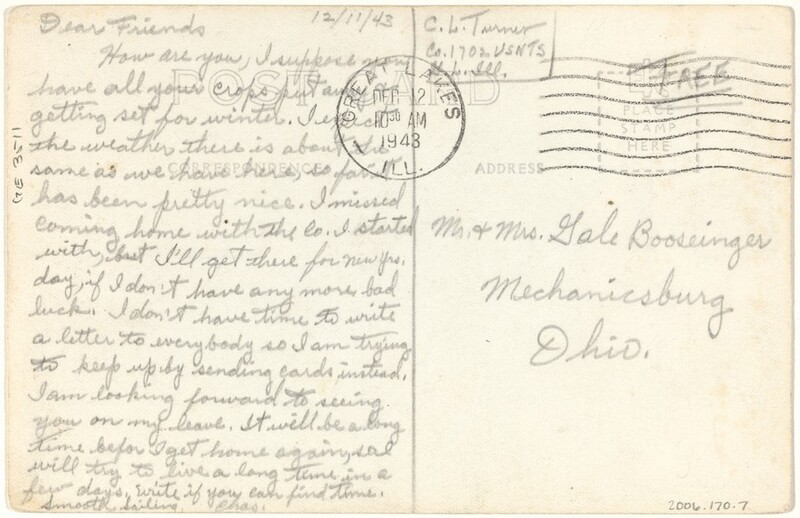 Dear Friends
12/11/43
How are you, I suppose you
have all your crops put and
getting set for winter. I expect
the weather there is about the
same as we have here, so far it
has been pretty nice. I missed
coming home with the Co. I started
with, but I'll get there for new yrs.
day, if I don't have any more bad
luck. I don't have time to write
a letter to everybody so I am trying
to keep up by sending cards instead.
I am looking forward to seeing
you on my leave. It will be a long
time befor I get home again, so I
will try to live a long time in a
few days. Write if you can find time.
smooth sailing. Chas.
POST CARD
CORRESPONDENCE
ADDRESS
C. L. Turner
Co. 1702 USNTS
G. L. Ill.
GREAT LAKES
DEC 12
10 30 AM
1943
ILL.
Free
PLACE
STAMP
HERE
Mr. & Mrs. Gale Booseinger
Mechanicsburg
Ohio.
GE 3511
2006.170.7